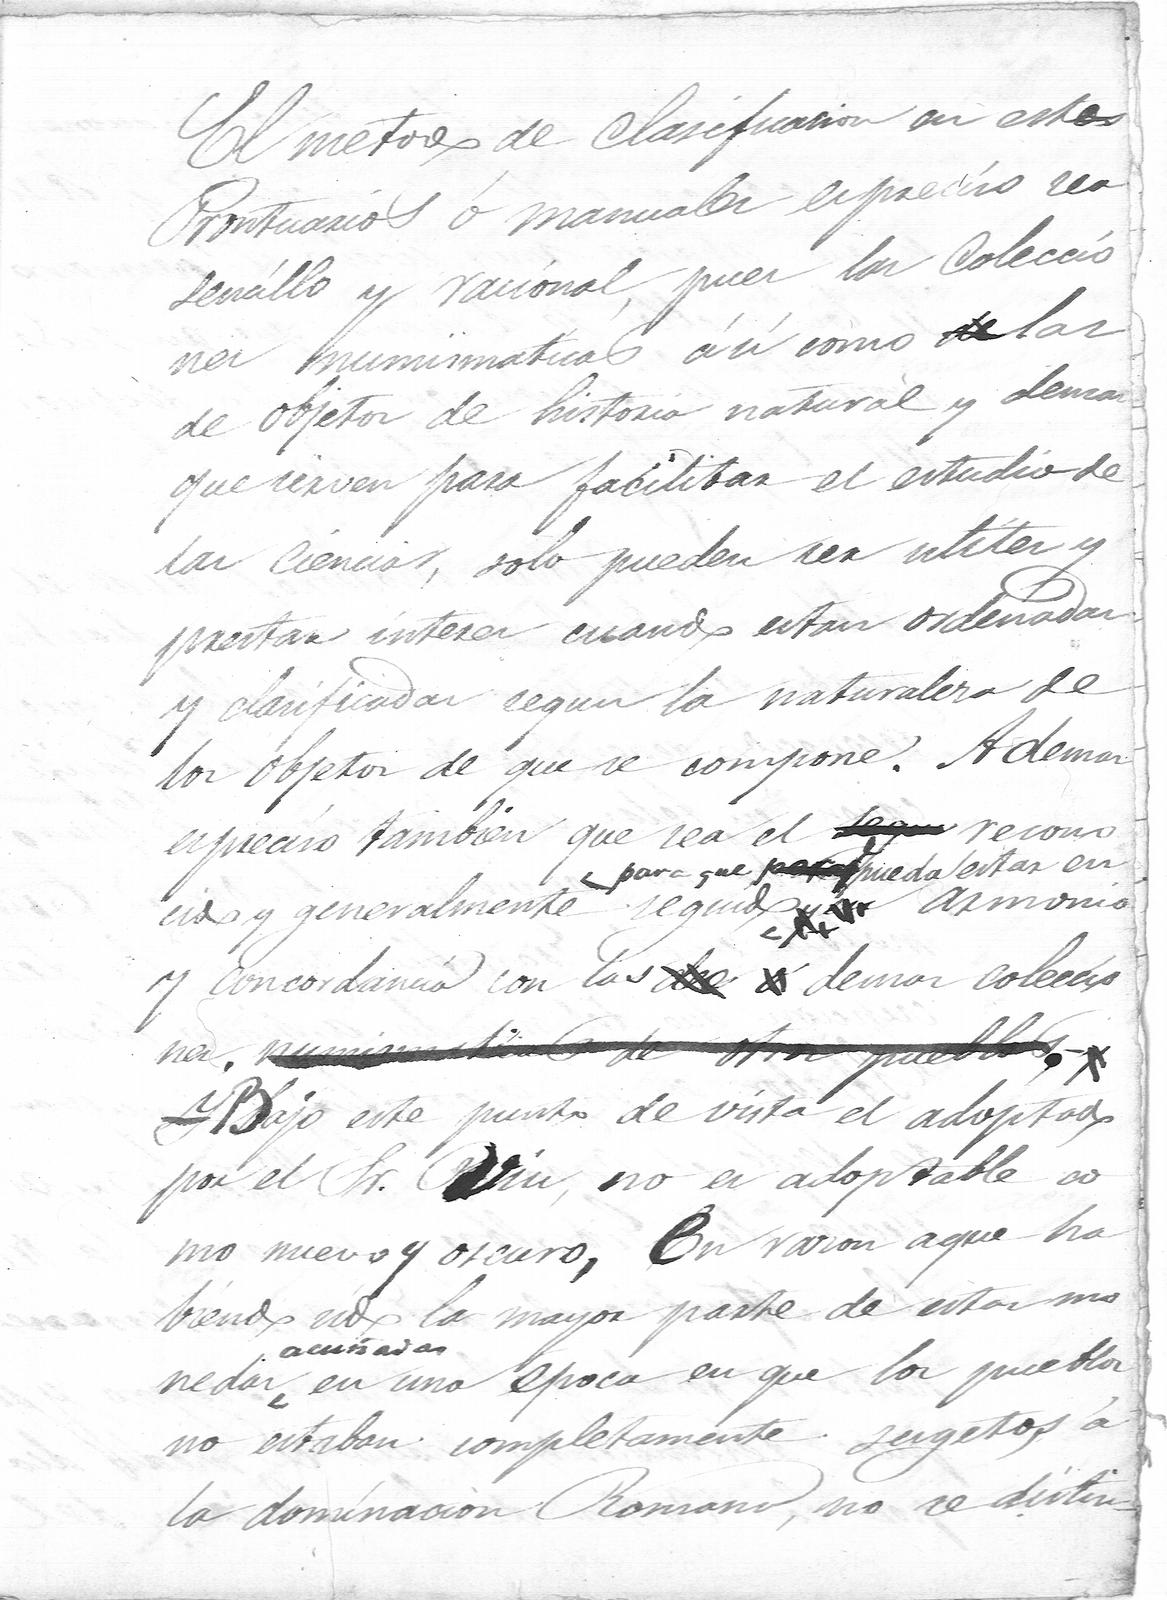 El metodo de clasificacion en estos
Prontuarios ó manuales es preciso sea
sencillo y racional, pues las coleccio
nes numismaticas asi como de las
de objetos de historia natural y demas
que sirven para facilitar el estudio de
las ciencias, solo pueden ser utiles y
prestar interes cuando estan ordenadas
y clasificadas segun la naturaleza de
los objetos de que se compone. Ademas
es preciso tambien que sea el segu recono
para que para pueda estar en
cido y generalmente seguido armonia
y concordancia con las de demas coleccio
nes. numismaticas de otros pueblos.
Y Bajo este punto de vista el adoptado
por el Sr. no es adoptable co
mo nuevo y oscuro, En razon aque ha
biendo sido la mayor parte de estas mo
acuñadas
nedas, en una epoca en que los pueblos
no estaban completamente sugetos á
la dominacion Romana, no se distin-